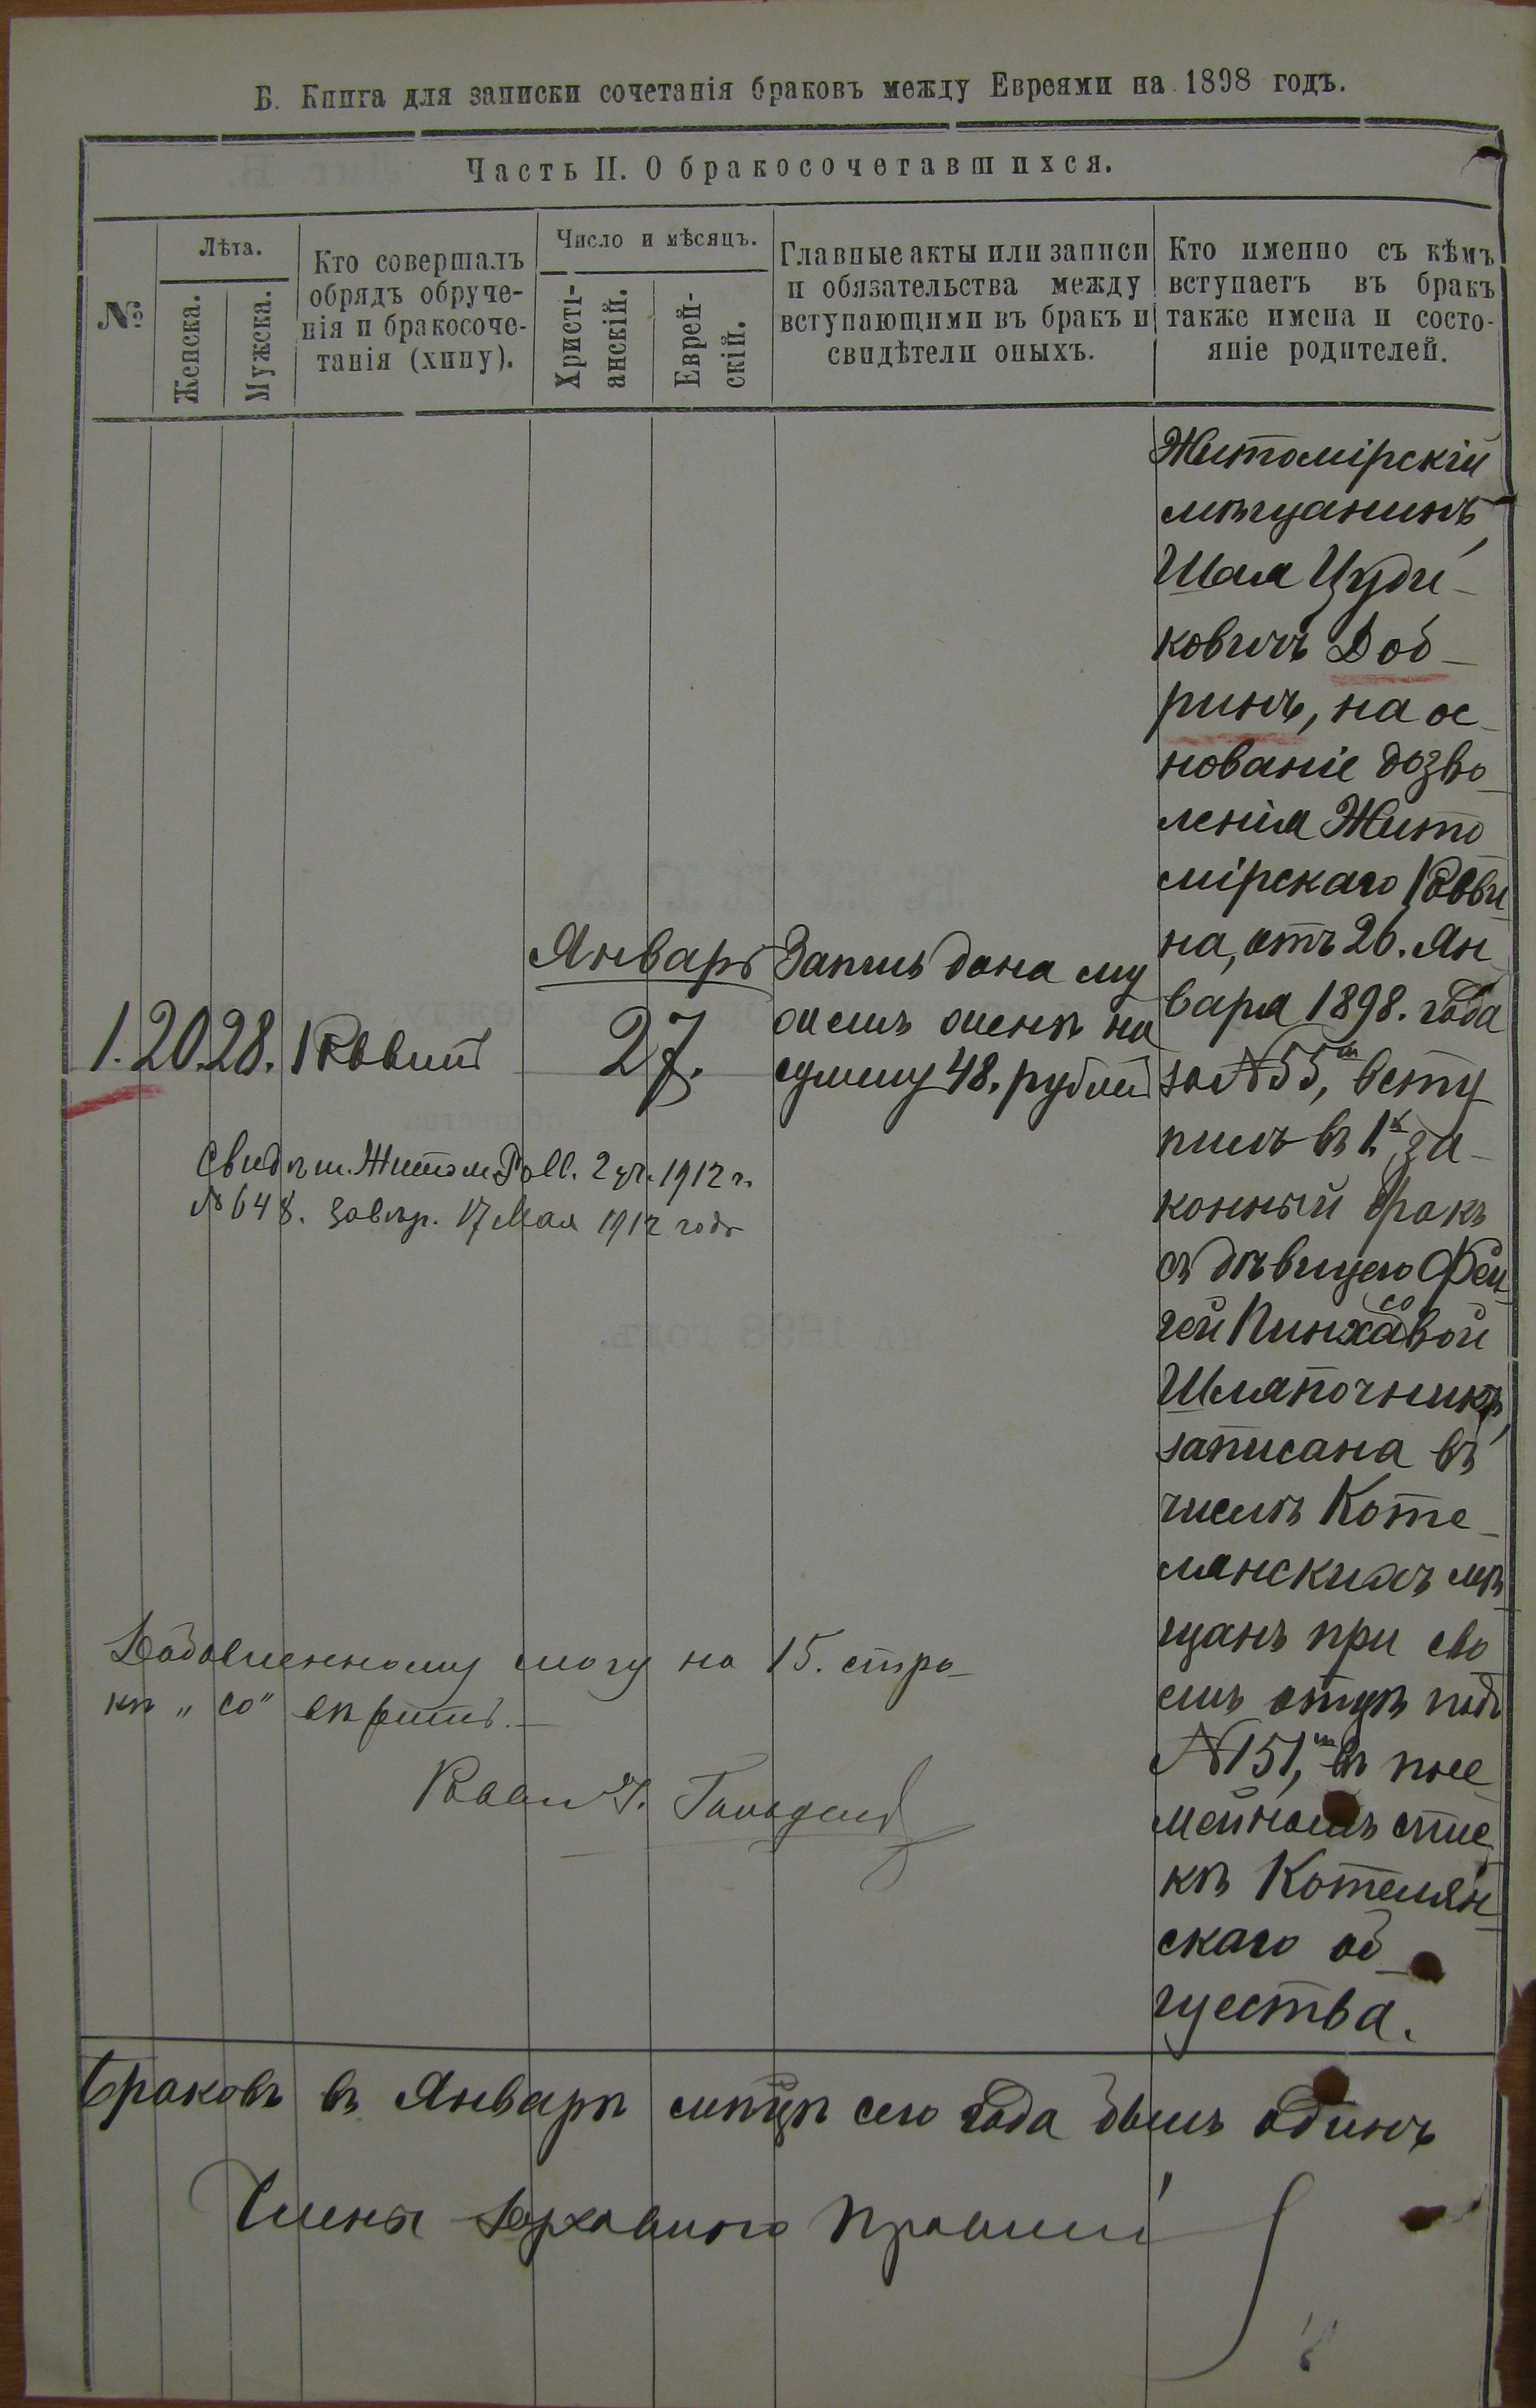 Б. Книга для записки сочетанія браковъ между Евреями на 1898 годъ.
Часть II. О бракосочетавшихся.
№
Лѣта.
Женска.
Мужска.
Кто совершалъ
обрядъ обруче-
нія и бракосоче-
танія (хипу).
Число и мѣсяцъ.
Христі-
анскій.
Еврей-
скій.
Главные акты или записи
и обязательства между
вступающими въ бракъ и
свидѣтели оныхъ.
Кто именно съ кѣмъ
вступаетъ въ бракъ
также имена и состо-
яніе родителей.
1. 20. 28. Раввинъ
Январь
27.
Запись дана му
жемъ женѣ на
сумму 48. рублей
Житомірскій
мѣщанинъ,
Шая Цуди-
ковичъ Доб-
ринъ, на ос-
нованіе дозво-
ленія Жито
мірскаго Равви
на, отъ 26. Ян
варя 1898. года
за №55, всту-
пилъ въ 1й за-
конный бракъ
съ дѣвицею Фей
гей Пинхасовой
Шляпочникъ,
записана въ
числѣ Коте-
лянскихъ мѣ
щанъ при сво
емъ отцѣ подъ
№151, въ посе
мейномъ спис
кѣ Котелян
скаго об-
щества.
Свидѣт. Житом. 2 уч. 1912 г.
№ 648. завѣр. 17 Мая 1912 года
Добавленному слогу на 15. стро-
кѣ „со" вѣрить.
Раввинъ
Браковъ въ Январѣ мѣсяцѣ сего года былъ одинъ
Члены Духовнаго Правленія